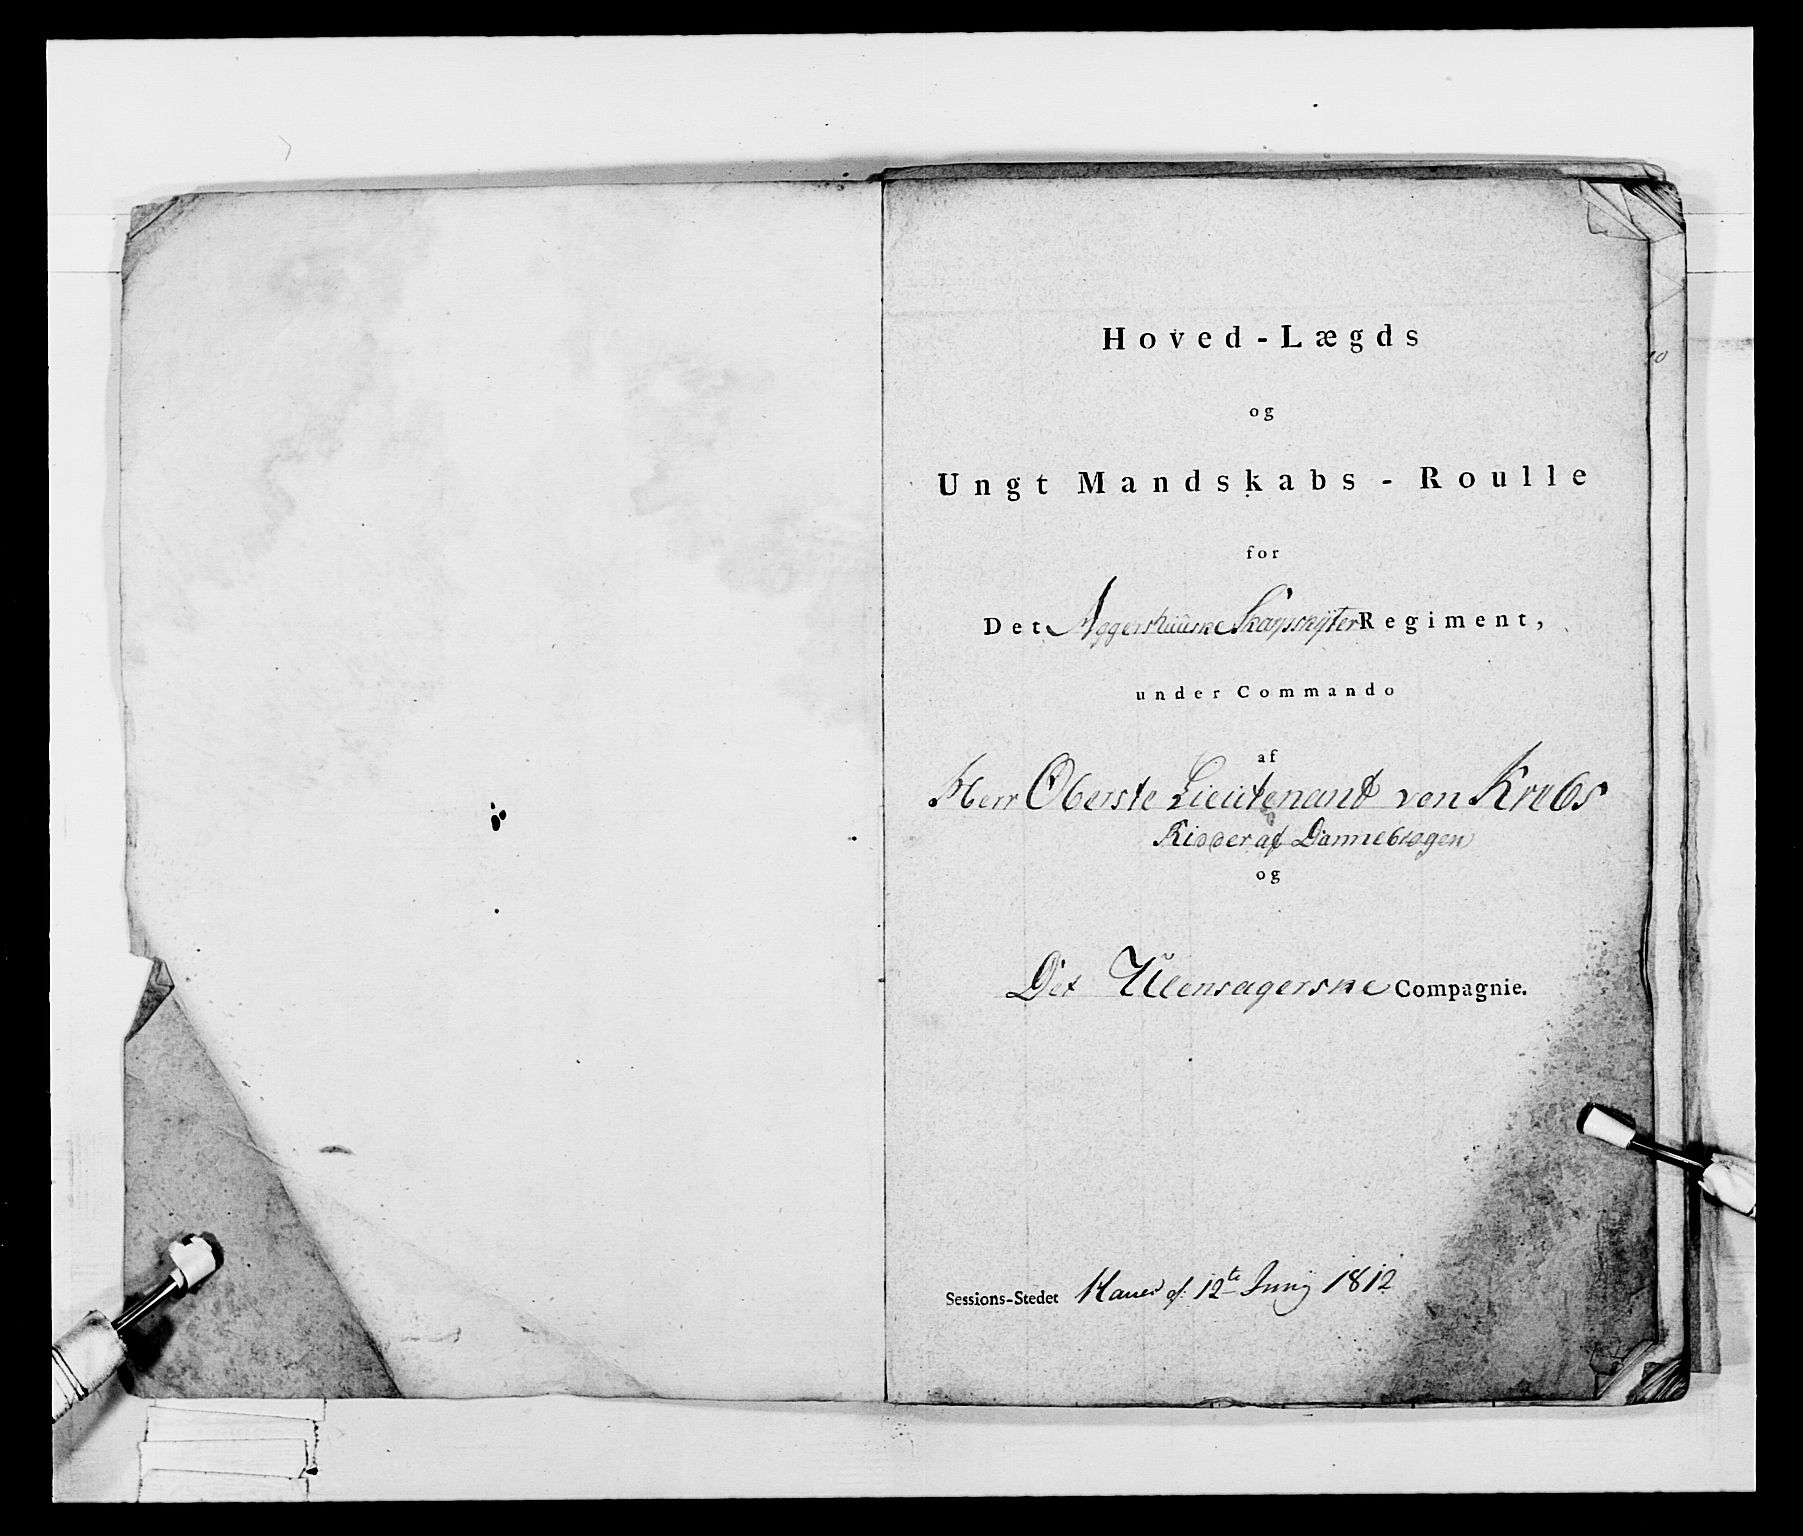 Hoved-Lægds
og
Ungt Mandskabs-Roulle
for
Det Aggershuuske Skarpskÿtter Regiment,
under Commando
af
Herr Oberste Lieutenant von Krebs
Ridder af Dannebrogen
og
Det Ullensagerske Compagnie.
Sessions-Stedet d: 12te Junÿ 1812